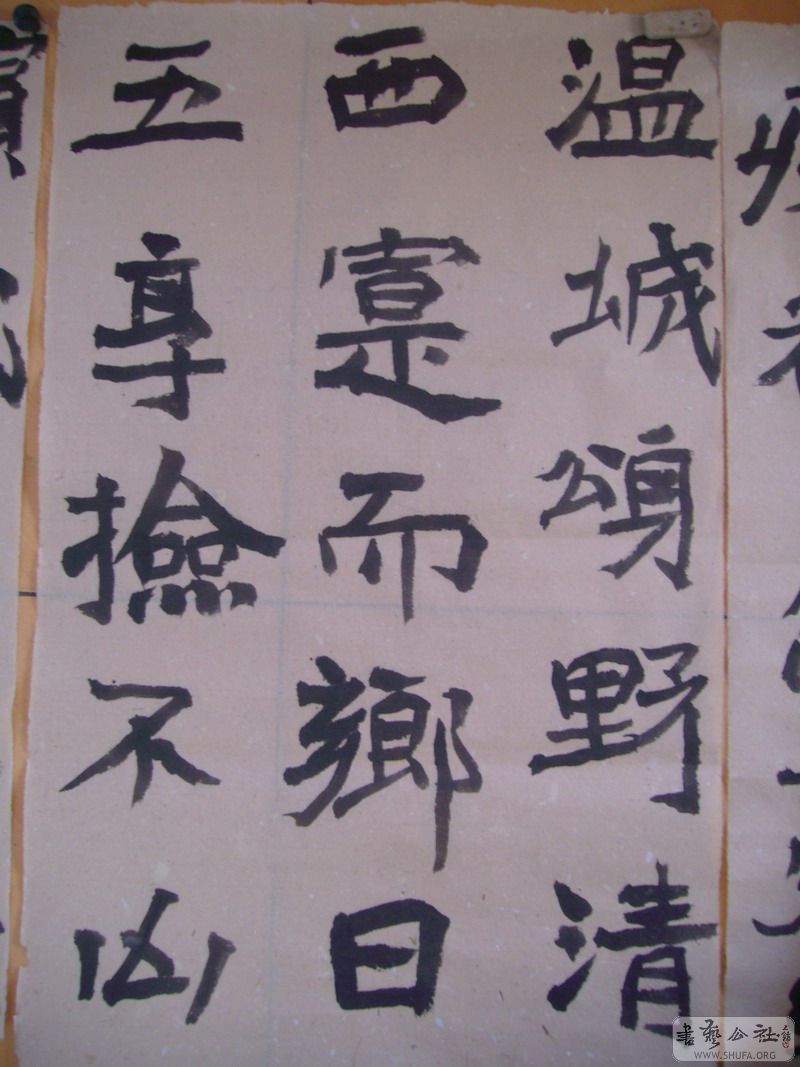 温城頌野清
西寔而鄉日
五享撿不凶
書藝公社
WWW.SHUFA.ORG